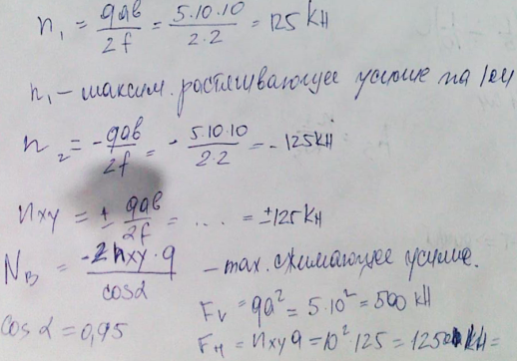 n₁ = qab/2f = 5·10·10/2·2 = 125 кН
n₁ – максим. растягивающее усилие на 1м
n₂ = -qab/2f = - 5·10·10/2·2 = - 125кН
nxy = ± qab/2f = .... = ±125 кН
N_B = -2nxy·q/cosα – max. сжимающее усилие.
F_V = qa² = 5·10² = 500 кН
cos α = 0,95
F_H = nxy a = 10²·125 = 1250 кН =